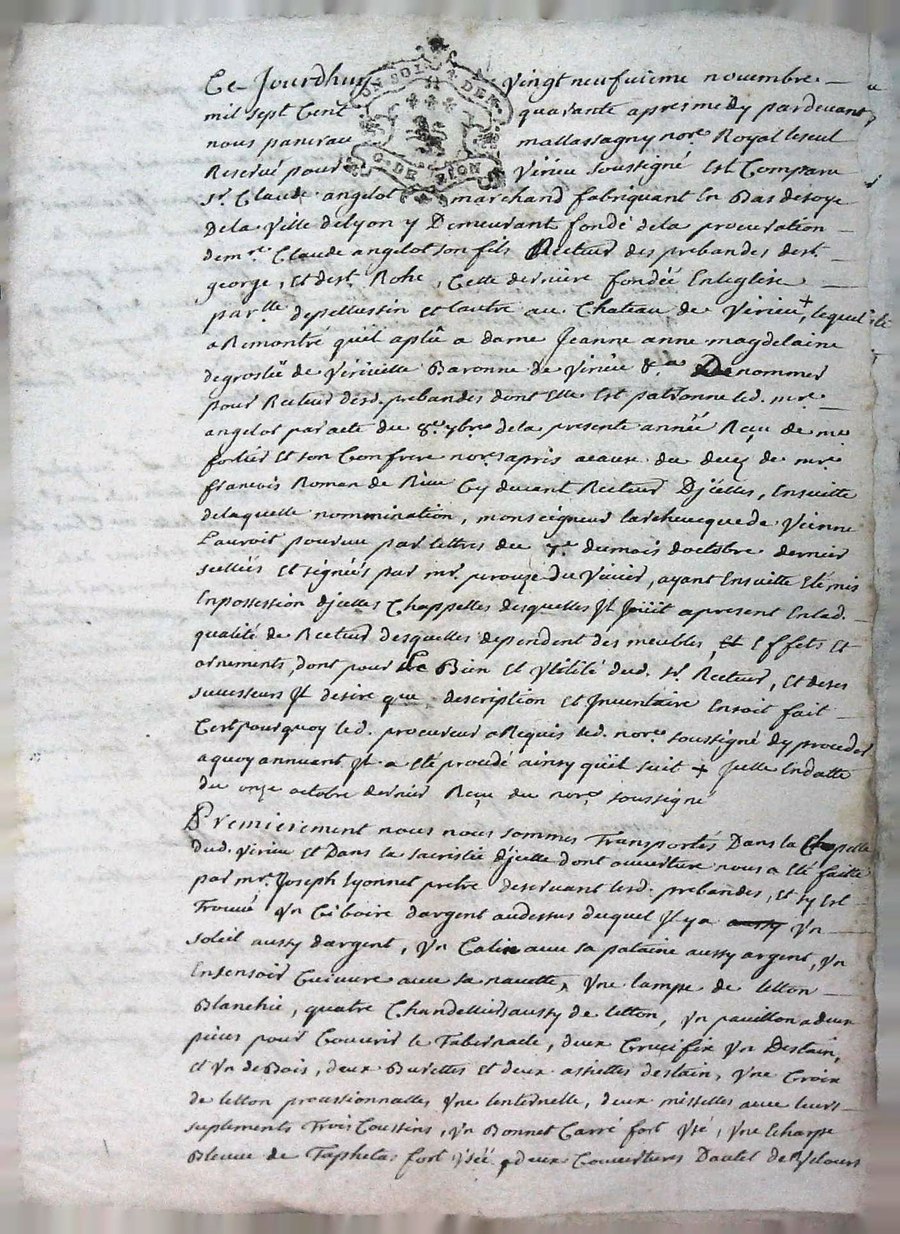 UN SOL 4 DEN.
G. DE LION
Ce Jourdhuy vingt neufuieme novembre
mil sept Cent quarante apres midy pardevant
nous paneraу mallassagny nore. Royal le seul
Reservé pour virieu soussigné est Comparu
sr. Claude angelot marchand fabriquant En Bas de soye
De la ville de lyon y Demeurant fondé de la procuration
de mre. Claude angelot son fils Recteur des prebandes de st.
george, Et de st. Rohc, Cette derniere fondée En leglise
par.lle de pellussin et lautre au Chateau de virieu + lequel
a Remontré quil a plû a dame Jeanne anne magdelaine
de groslée de virivelle Baronne de virieu &a De nommer
pour Recteur desd. prebandes dont Elle Est patronne led. mre.
angelot par acte du 8e. 7bre. de la presente année Reçu de me
fortier et son Confrere nores. apris a cause du deces de mre.
francois Roman de Rive Cy devant Recteur Djcelles, Ensuitte
de laquelle nommination, monseigneur larcheveque de vienne
Lauroit pourvu par lettres du 7e. du mois doctobre dernier
scellées et signées par mr. perouze du vivier, ayant Ensuitte Eté mis
En possession djcelles Chappelles desquelles Jl Joüit apresent En lad.
qualité de Recteur desquelles dependent des meubles, Et Effets Et
ornements, dont pour Le Bien et Vtilité dud. sr. Recteur, Et de ses
successeurs Jl desire que description et Jnventaire En soit fait
Cest pourquoy led. procureur a Requis led. nore. soussigné dy proceder
a quoy annuant Jl a Eté procédé ainsy quil suit + Jcelle En datte
du onze octobre dernier Reçu du nore. soussigné
Premierement nous nous sommes Transportés Dans la Chapelle
dud. virieu et Dans la sacristie djcelle dont ouverture nous a Eté faitte
par mr. Joseph Lyonnet pretre deservant lesd. prebandes, et sy Est
Trouvé Vn Ciboire dargent au dessus duquel Jl y a aussy Vn
soleil aussy dargent, Vn Calin avec sa pataine aussy argent, Vn
Ensensoir Cuivre avec sa navette, Vne lampe de letton
Blanchie, quatre Chandelliers aussy de letton, Vn pavillon a deux
pieces pour Couvrir le Tabernacle, deux Crucifix Vn Destain,
et Vn de Bois, deux Burettes et deux assiettes destain, Vne Croix
de letton processionnalles Vne lenternelle, deux misselles avec leurs
suplements Trois Coussins, Vn Bonnet Carré fort Vsé, Vne Echarpe
Bleuue de Taphetas fort Vsée, deux Couvertures Dautel de Velours